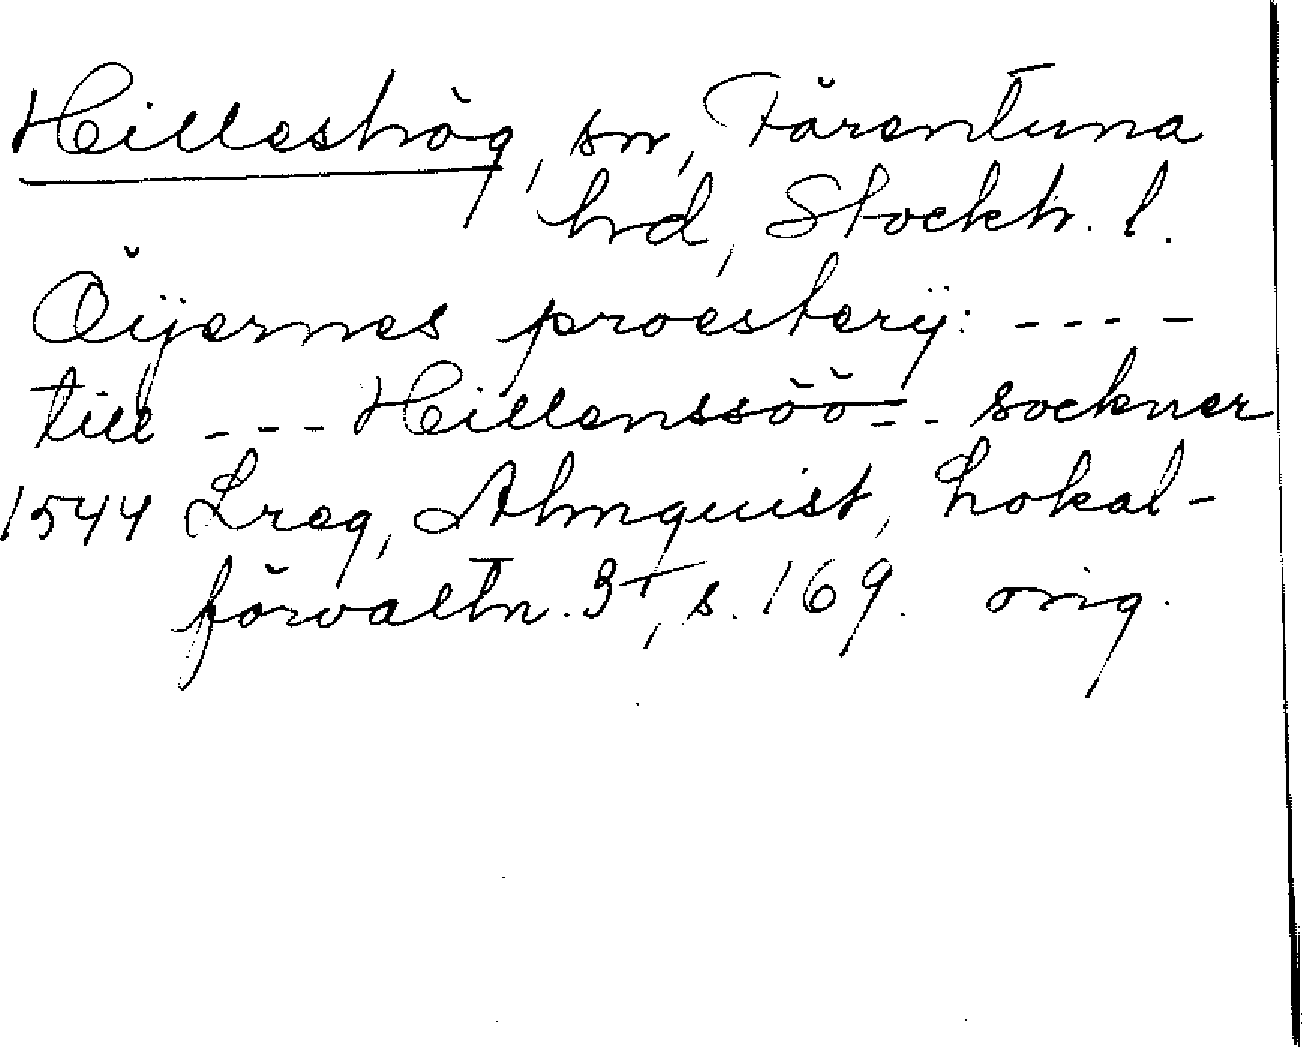 Hilleshög, sn, Färentuna
hd, Stockh. l.
Öijernes proestery: ----
till --- Hillenssöö -- sockner
1544 Lreg, Almquist, Lokal-
förvaltn. 3 I, s. 169. orig.